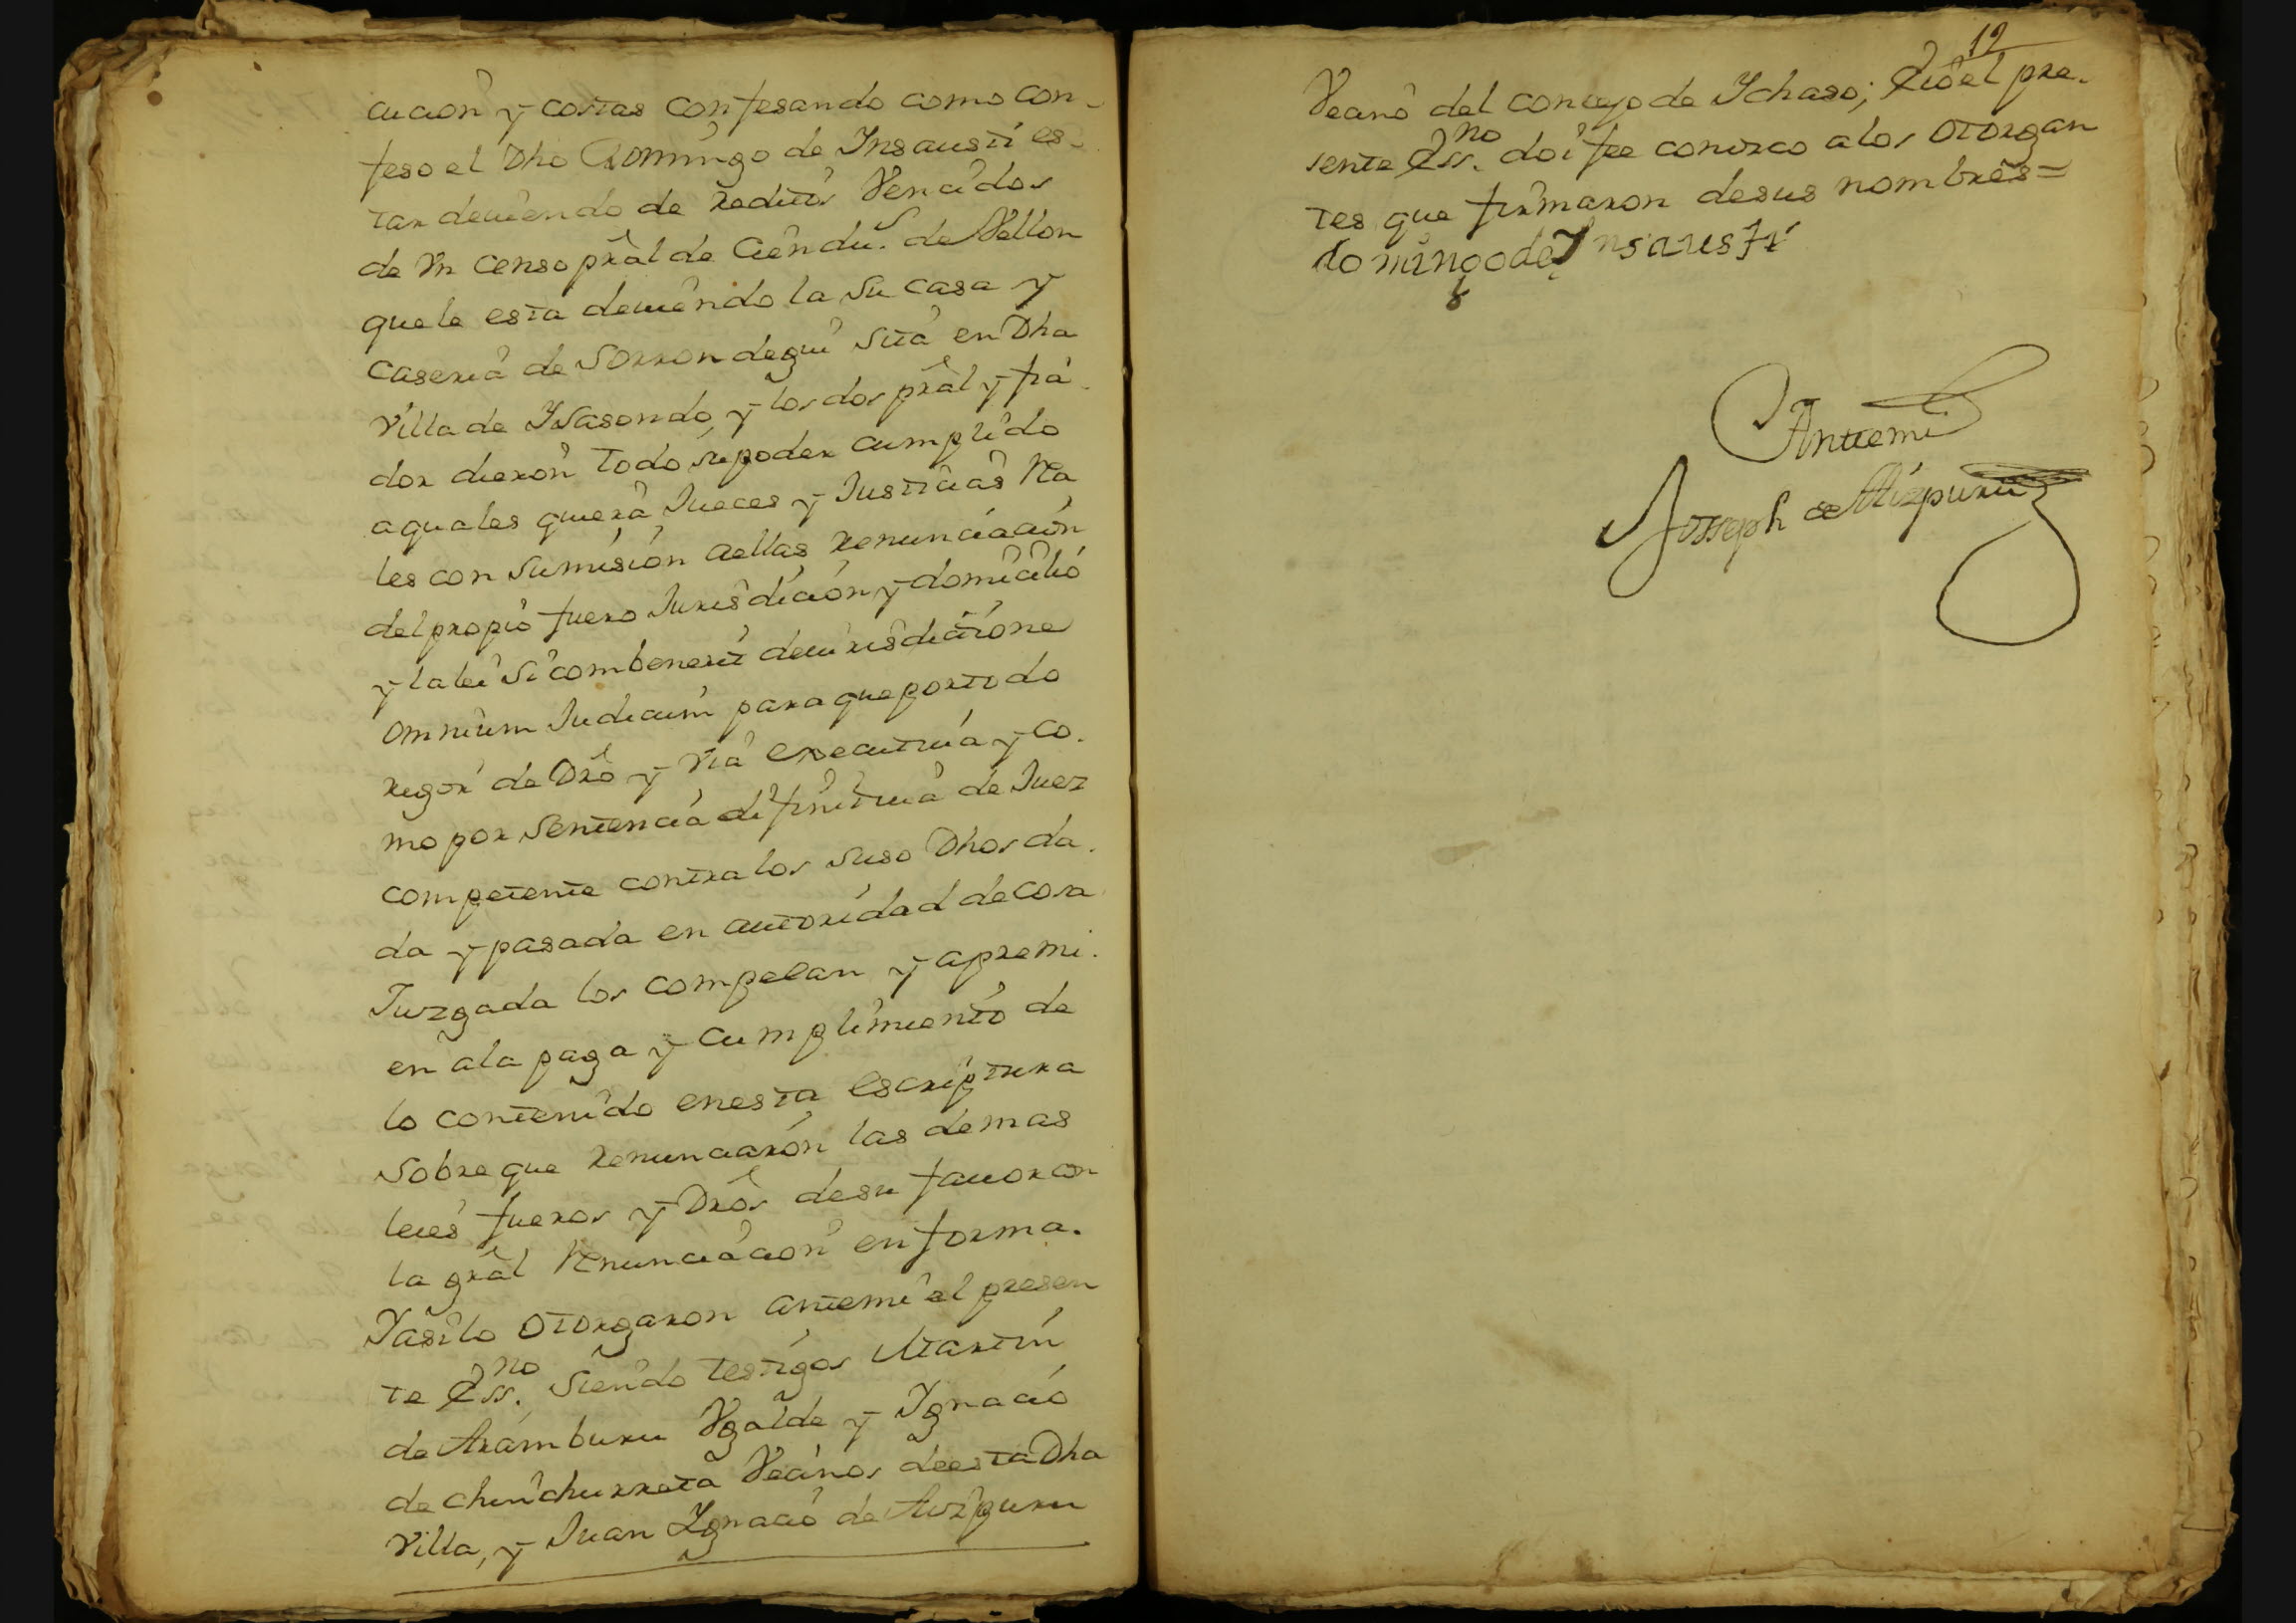 cucion y costas confesando como con-
feso el Dho Domingo de Insausti es-
tar deviendo de reditos Vencidos
de Vn censo pral de cien du.s de Vellon
que le esta deviendo la su casa y
caseria de Sorrondegui sita en Dha
Villa de Ysasondo, y los dos pral y fia
dor dieron todo su poder cumplido
a quales quiera Jueces y Justicias Rea
les con sumision aellas, renunciacion
del propio fuero Jurisdicion y domicilio
y la lei si combenerit de iurisdictione
omnium Judicum para que por todo
rigor de Dro y via executiva y co-
mo por sentencia difinitiva de Juez
competente contra los suso Dhos da-
da y pasada en autoridad de cosa
Juzgada los compelan y apremi-
en a la paga y cumplimiento de
lo contenido en esta escriptura
sobre que renunciaron las demas
leies fueros y Dros de su favor con
la gral Renunciacion en forma.
Y asi lo otorgaron ante mi el presen
te Ess.no siendo testigos Martin
de Aramburu Vgalde y Ygnacio
de chinchurreta Vecinos de esta Dha
Villa, y Juan Ygnacio de Aizpuru
12
Vecino del concejo de Ychaso; E io el pre-
sente Ess.no doi fee conozco a los otorgan
tes que firmaron de sus nombres =
domingo de Insausti
Ante mi
Josseph de Aizpuru